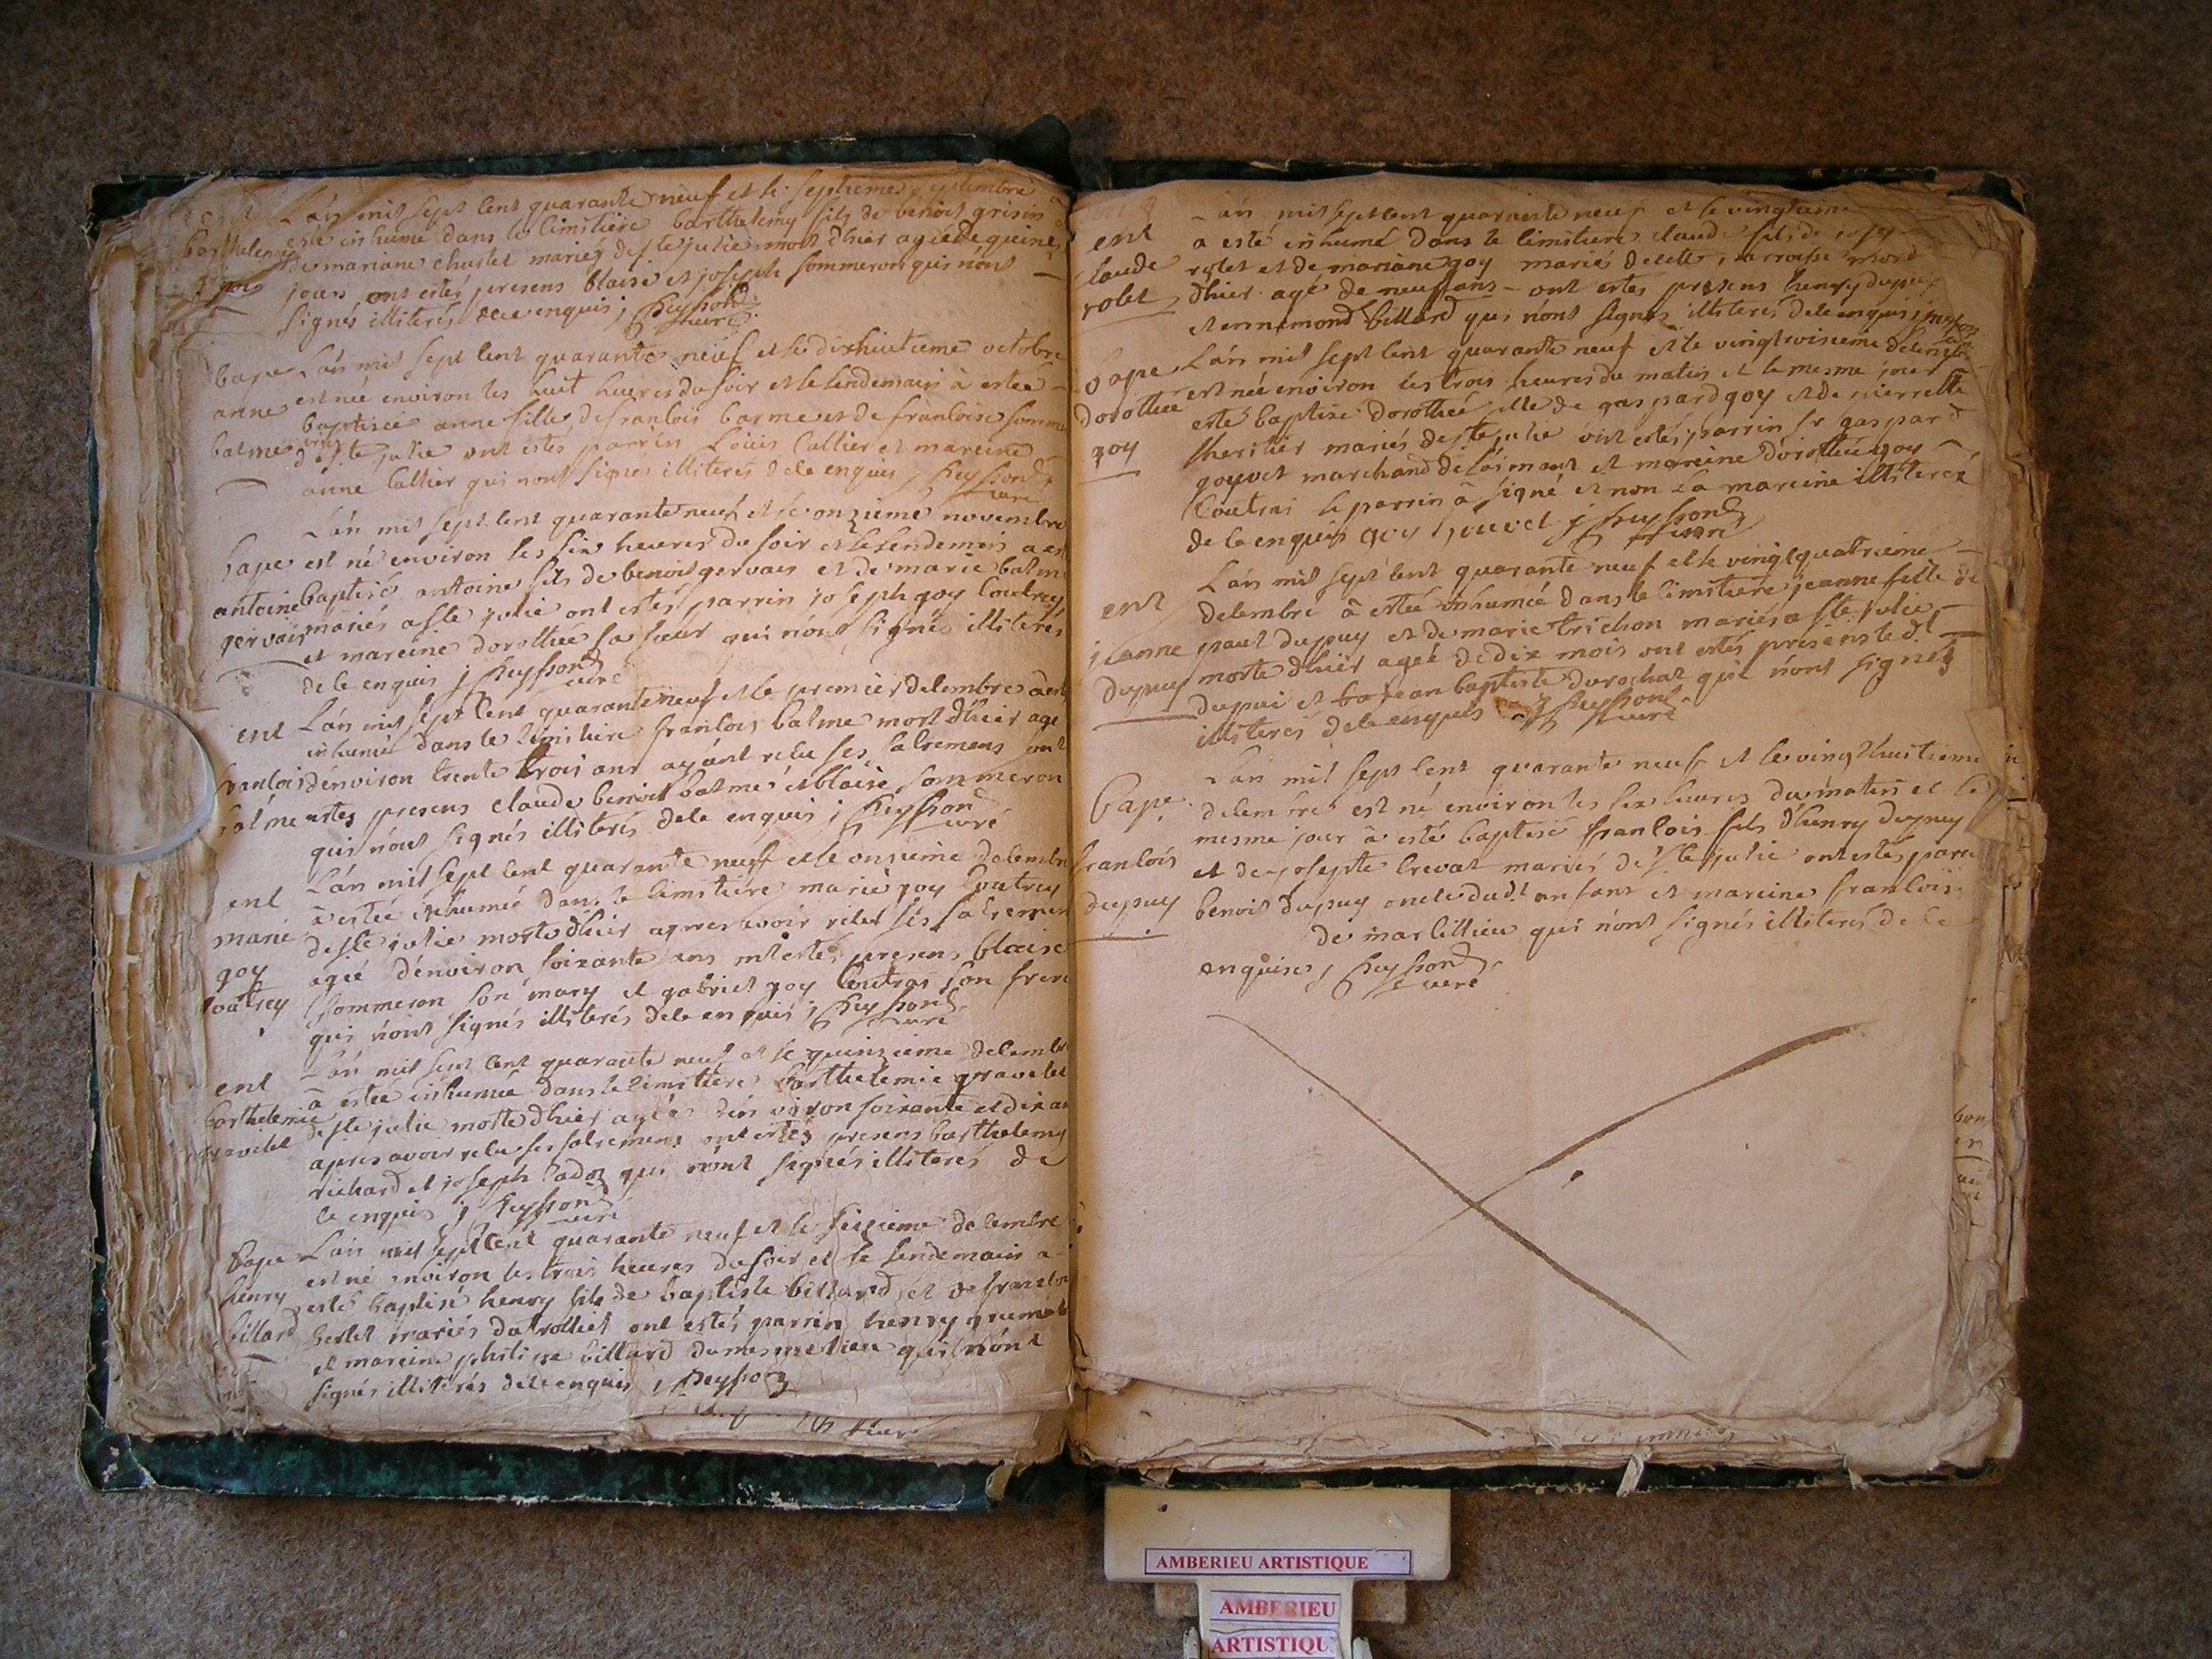 L'an mil sept cent quarante neuf et le septieme septembre
esté inhumé dans le cimistiere barthelemy fils de benoit grisin
barthelemy
de mariane chastel mariés de ste julie mort dhier agé de quinze
jours ont estés presens blaise et joseph sommeron qui nont
signés illiterés de ce enquis j Cheysson
curé
bape L'an mil sept cent quarante neuf et le dixhuitieme octobre
anne est née environ les huit heures du soir et le lendemain à estée
baptisée anne fille de francois barme et de francoise somme
balme de ste julie ont estés parrin Louis Callier et mareine
anne Callier qui nont signés illiterés de ce enquis j Cheysson
curé
L'an mil sept cent quarante neuf et le onzieme novembre
bape est né environ les six heures du soir et le lendemain a est
antoine baptisé antoine fils de benoit gervais et de marie balme
gervais mariés a ste julie ont estés parrin joseph goy Coutrey
et mareine dorothée sa soeur qui n'ont signés illiterés
de ce enquis j Cheysson
curé
L'an mil sept cent quarante neuf et le premier decembre a est
ent inhumé dans le cimistiere francois balme mort d'hier agé
francois d'environ trente trois ans ayant recu ses sacremens ont
balme estes presens claude benoit balme et blaise sommeron
qui n'ont signés illiterés de ce enquis j Cheysson
curé
L'an mil sept cent quarante neuf et le onzieme decembre
ent à estée inhumée dans le cimistiere marie goy Coutrey
marie de ste julie morte d'hier apres avoir recu ses sacremen
goy agée d'environ soixante ans ont estés presens blaise
Coutrey sommeron son mary et gabriel goy Coutras son frere
qui n'ont signés illiterés de ce enquis j Cheysson
curé
L'an mil sept cent quarante neuf et le quinzieme decembre
ent à estée inhumée dans le cimistiere barthelemie gravelet
barthelemie de ste julie morte d'hier agée d'environ soixante et dix an
gravelet apres avoir recu ses sacremens ont estes presens barthelemy
richard et joseph Cadoz qui n'ont signés illiterés de
ce enquis j Cheysson
curé
bape L'an mil sept cent quarante neuf et le seizieme decembre
henry est né environ les trois heures du soir et le lendemain a
esté baptisé henry fils de baptiste billard et de francoi
billard berlet mariés du rolliet ont estés parrin henry grumet
et mareine philipe billard du mesme lieu qui n'ont
signés illiterés de ce enquis j Cheysson
curé
L'an mil sept cent quarante neuf et le vingtieme
ent a esté inhumé dans le cimistiere claude fils de
claude rolet et de mariane goy mariés de cette parroisse mort
rolet dhier agé de neuf ans ont estes presens henry dupuy
et ennemond billard qui n'ont signés illiterés de ce enquis j Cheysson
curé
bape L'an mil sept cent quarante neuf et le vingtroisieme decembre
dorothée est née environ les trois heures du matin et le mesme jour
goy esté baptisé dorothée fille de gaspard goy et de pierrette
theritier mariés de ste julie ont estés parrin sr gaspard
gouvet marchand de loimant et mareine dorothée goy
Coutras le parrin à signé et non la mareine illiterée
de ce enquis goy gouvet j Cheysson
curé
L'an mil sept cent quarante neuf et le vingtquatrieme
ent decembre à estée inhumée dans le cimistiere jeanne fille de
jeanne paul dupuy et de marie trichon mariés a ste julie
dupuy morte d'hier agée de dix mois ont estés presens le dt
dupui et jean baptiste durochat qui n'ont signés
illiterés de ce enquis j Cheysson
curé
L'an mil sept cent quarante neuf et le vingthuitieme
bape decembre est né environ les six heures du matin et le
mesme jour à esté baptisé francois fils d'henry dupuy
francois et de josepte crevat mariés de ste julie ont estés parrin
dupuy benoit dupuy oncle dudt enfant et mareine francoise
de marcillieu qui n'ont signés illiterés de ce
enquis j Cheysson
curé
AMBERIEU ARTISTIQUE
AMBERIEU
ARTISTIQU